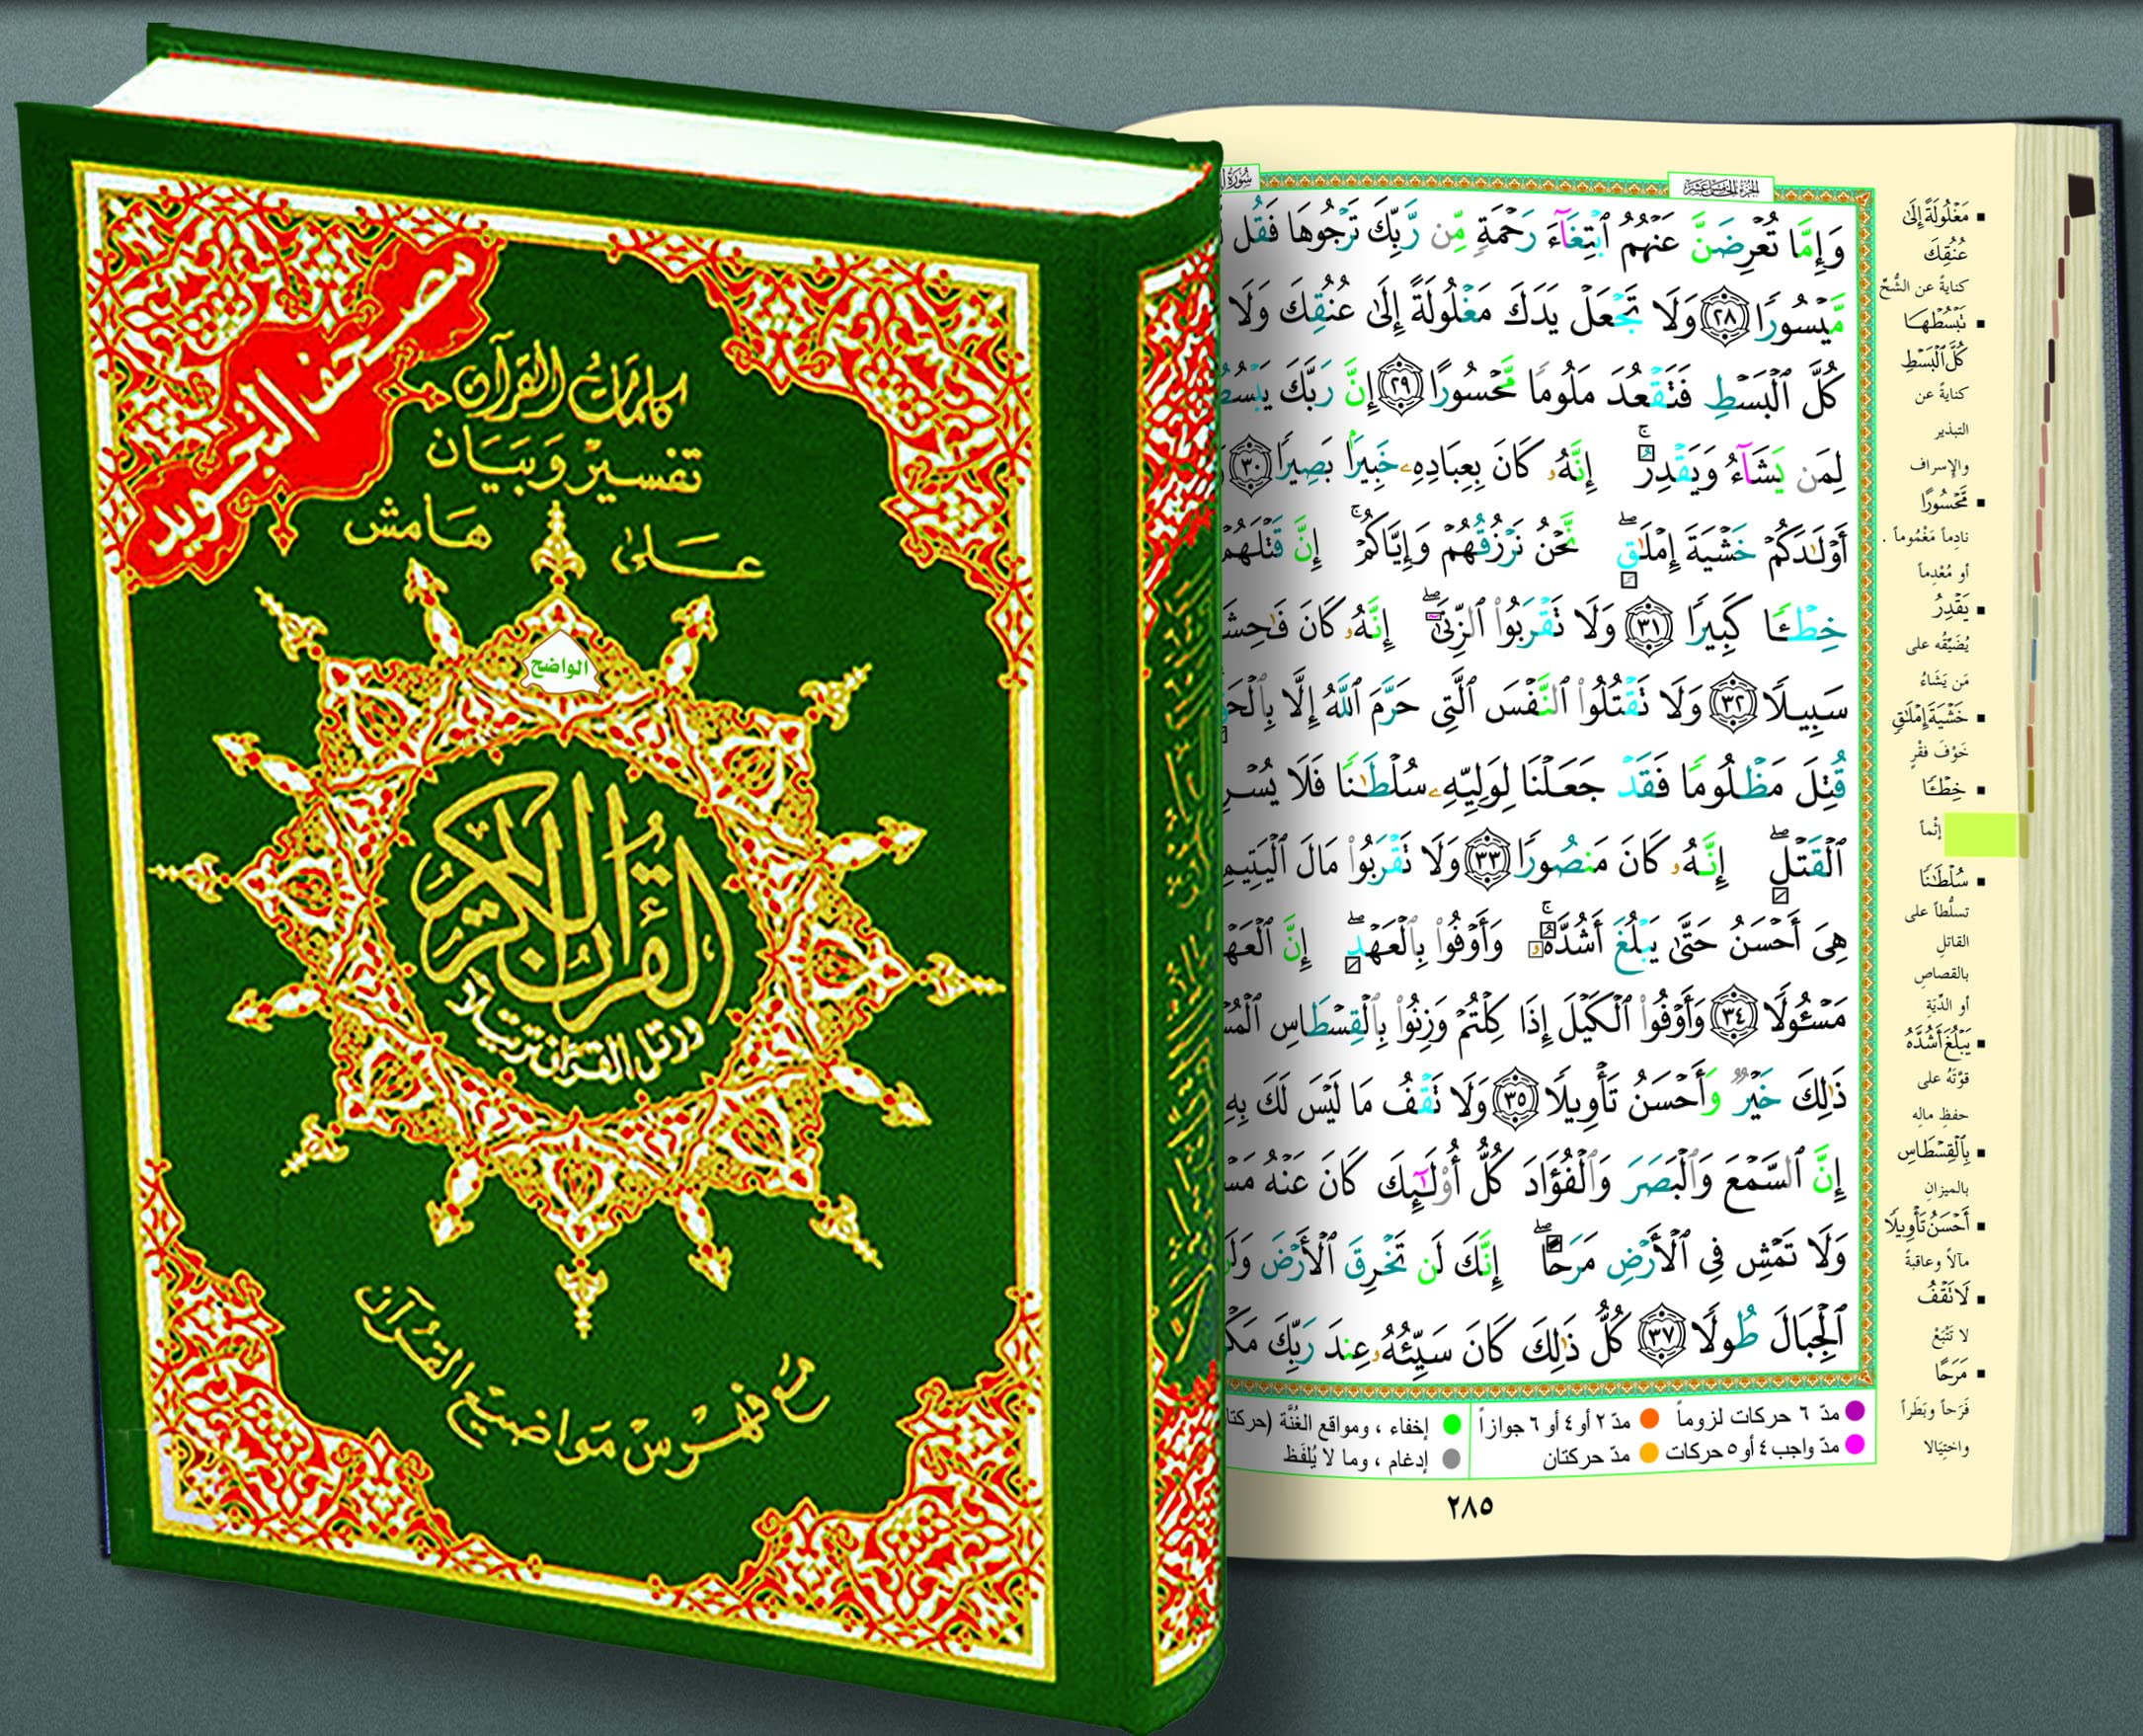 مصحف التجويد
كلمات القرآن
تفسير وبيان
على هامش
الواضح
القرآن الكريم
ورتل القرآن ترتيلا
مع فهرس مواضيع القرآن
سُورَةُ
الجزء الخامس عشر
وَإِمَّا تُعْرِضَنَّ عَنْهُمُ ٱبْتِغَآءَ رَحْمَةٍ مِّن رَّبِّكَ تَرْجُوهَا فَقُل
مَّيْسُورًا ٢٨ وَلَا تَجْعَلْ يَدَكَ مَغْلُولَةً إِلَىٰ عُنُقِكَ وَلَا
كُلَّ ٱلْبَسْطِ فَتَقْعُدَ مَلُومًا مَّحْسُورًا ٢٩ إِنَّ رَبَّكَ يَبْسُطُ
لِمَن يَشَآءُ وَيَقْدِرُ ۚ إِنَّهُۥ كَانَ بِعِبَادِهِۦ خَبِيرًۢا بَصِيرًا ٣٠
أَوْلَـٰدَكُمْ خَشْيَةَ إِمْلَـٰقٍ ۖ نَّحْنُ نَرْزُقُهُمْ وَإِيَّاكُمْ ۚ إِنَّ قَتْلَهُمْ
خِطْـًٔا كَبِيرًا ٣١ وَلَا تَقْرَبُوا۟ ٱلزِّنَىٰٓ ۖ إِنَّهُۥ كَانَ فَـٰحِشَ
سَبِيلًا ٣٢ وَلَا تَقْتُلُوا۟ ٱلنَّفْسَ ٱلَّتِى حَرَّمَ ٱللَّهُ إِلَّا بِٱلْحَقِّ
قُتِلَ مَظْلُومًا فَقَدْ جَعَلْنَا لِوَلِيِّهِۦ سُلْطَـٰنًا فَلَا يُسْرِ
ٱلْقَتْلِ ۖ إِنَّهُۥ كَانَ مَنصُورًا ٣٣ وَلَا تَقْرَبُوا۟ مَالَ ٱلْيَتِيمِ
هِىَ أَحْسَنُ حَتَّىٰ يَبْلُغَ أَشُدَّهُۥ ۚ وَأَوْفُوا۟ بِٱلْعَهْدِ ۖ إِنَّ ٱلْعَهْ
مَسْـُٔولًا ٣٤ وَأَوْفُوا۟ ٱلْكَيْلَ إِذَا كِلْتُمْ وَزِنُوا۟ بِٱلْقِسْطَاسِ ٱلْمُسْ
ذَٰلِكَ خَيْرٌ وَأَحْسَنُ تَأْوِيلًا ٣٥ وَلَا تَقْفُ مَا لَيْسَ لَكَ بِهِ
إِنَّ ٱلسَّمْعَ وَٱلْبَصَرَ وَٱلْفُؤَادَ كُلُّ أُو۟لَـٰٓئِكَ كَانَ عَنْهُ مَسْ
وَلَا تَمْشِ فِى ٱلْأَرْضِ مَرَحًا ۖ إِنَّكَ لَن تَخْرِقَ ٱلْأَرْضَ وَلَن
ٱلْجِبَالَ طُولًا ٣٧ كُلُّ ذَٰلِكَ كَانَ سَيِّئُهُۥ عِندَ رَبِّكَ مَكْ
مدّ ٦ حركات لزوماً
مدّ ٢ أو ٤ أو ٦ جوازاً
إخفاء ، ومواقع الغُنَّة (حركتا
مدّ واجب ٤ أو ٥ حركات
مدّ حركتان
إدغام ، وما لا يُلفَظ
٢٨٥
مَغْلُولَةً إِلَىٰ
عُنُقِكَ
كنايةً عن الشُّحّ
تَبْسُطْهَا
كُلَّ ٱلْبَسْطِ
كنايةً عن
التبذير
والإسراف
مَّحْسُورًا
نادِماً مَغْمُوماً .
أو مُعْدِماً
يَقْدِرُ
يُضَيِّقُه على
مَن يَشَاءُ
خَشْيَةَ إِمْلَـٰقٍ
خَوْفَ فَقْرٍ
خِطْـًٔا
إثْماً
سُلْطَـٰنًا
تسلُّطاً على
القاتلِ
بالقصاصِ
أو الدِّيَةِ
يَبْلُغَ أَشُدَّهُ
قوَّتَهُ على
حفظِ مالِه
بِٱلْقِسْطَاسِ
بالميزانِ
أَحْسَنُ تَأْوِيلًا
مآلاً وعاقبةً
لَا تَقْفُ
لا تَتْبَعْ
مَرَحًا
فَرَحاً وبَطَراً
واختِيَالا